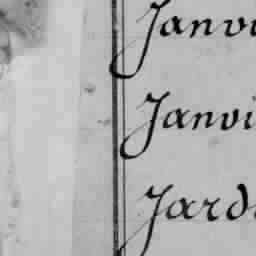 Janvi
Janvi
Jard